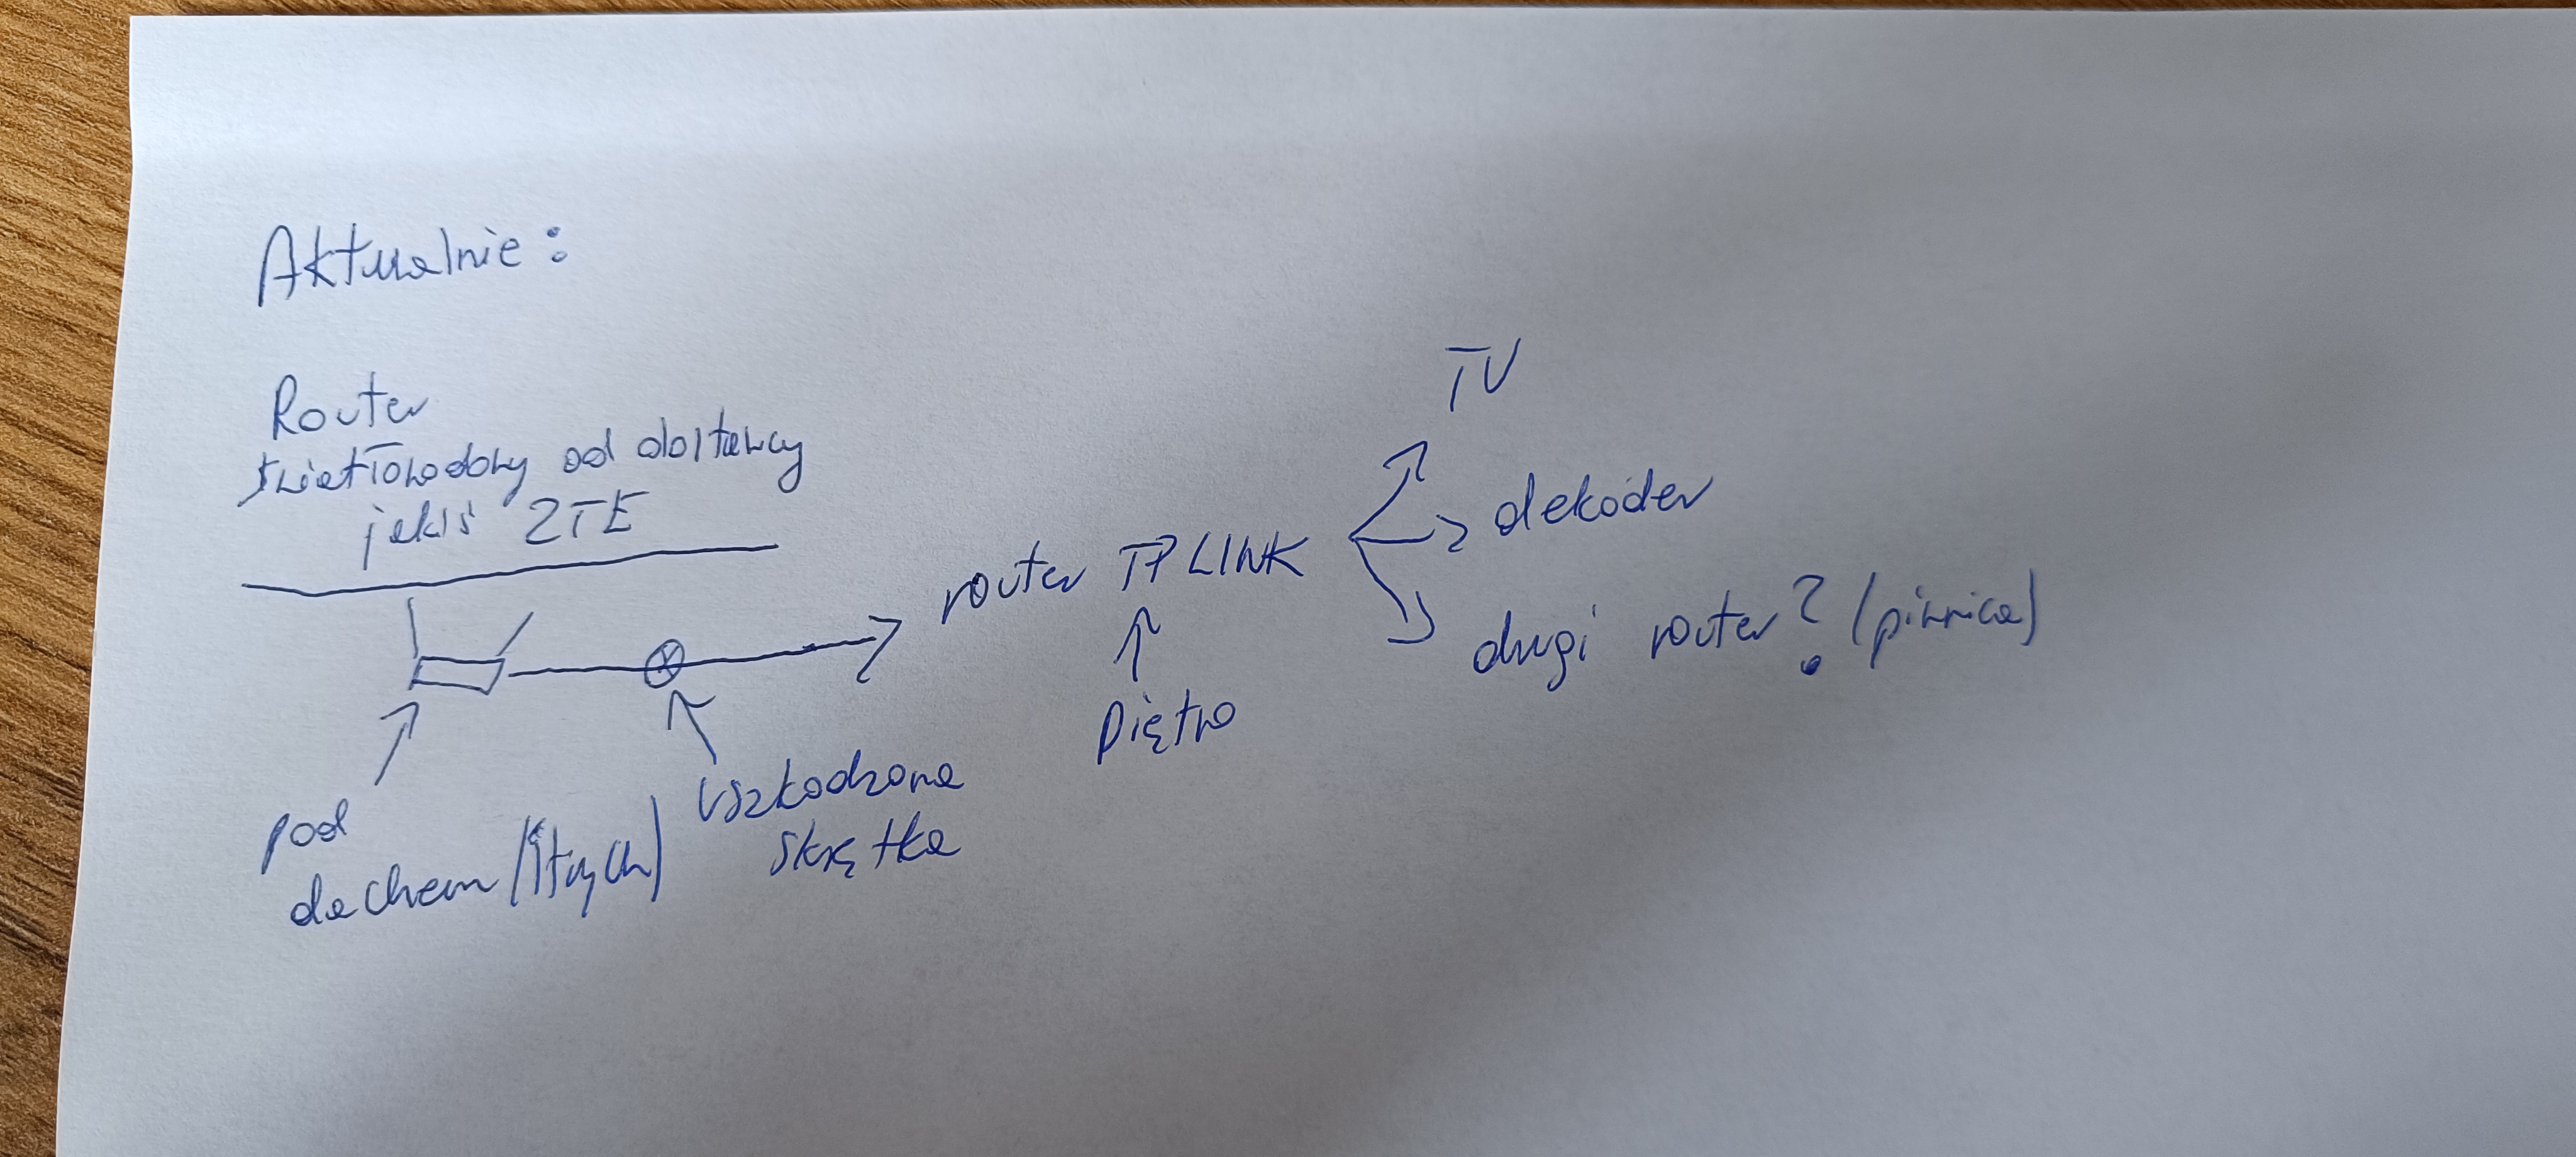 Aktualnie:
Router
światłowodowy od dostawcy
jakiś ZTE
TV
dekoder
router TP LINK
drugi router? (piwnica)
piętro
uszkodzona
skrętka
pod
dachem (strych)